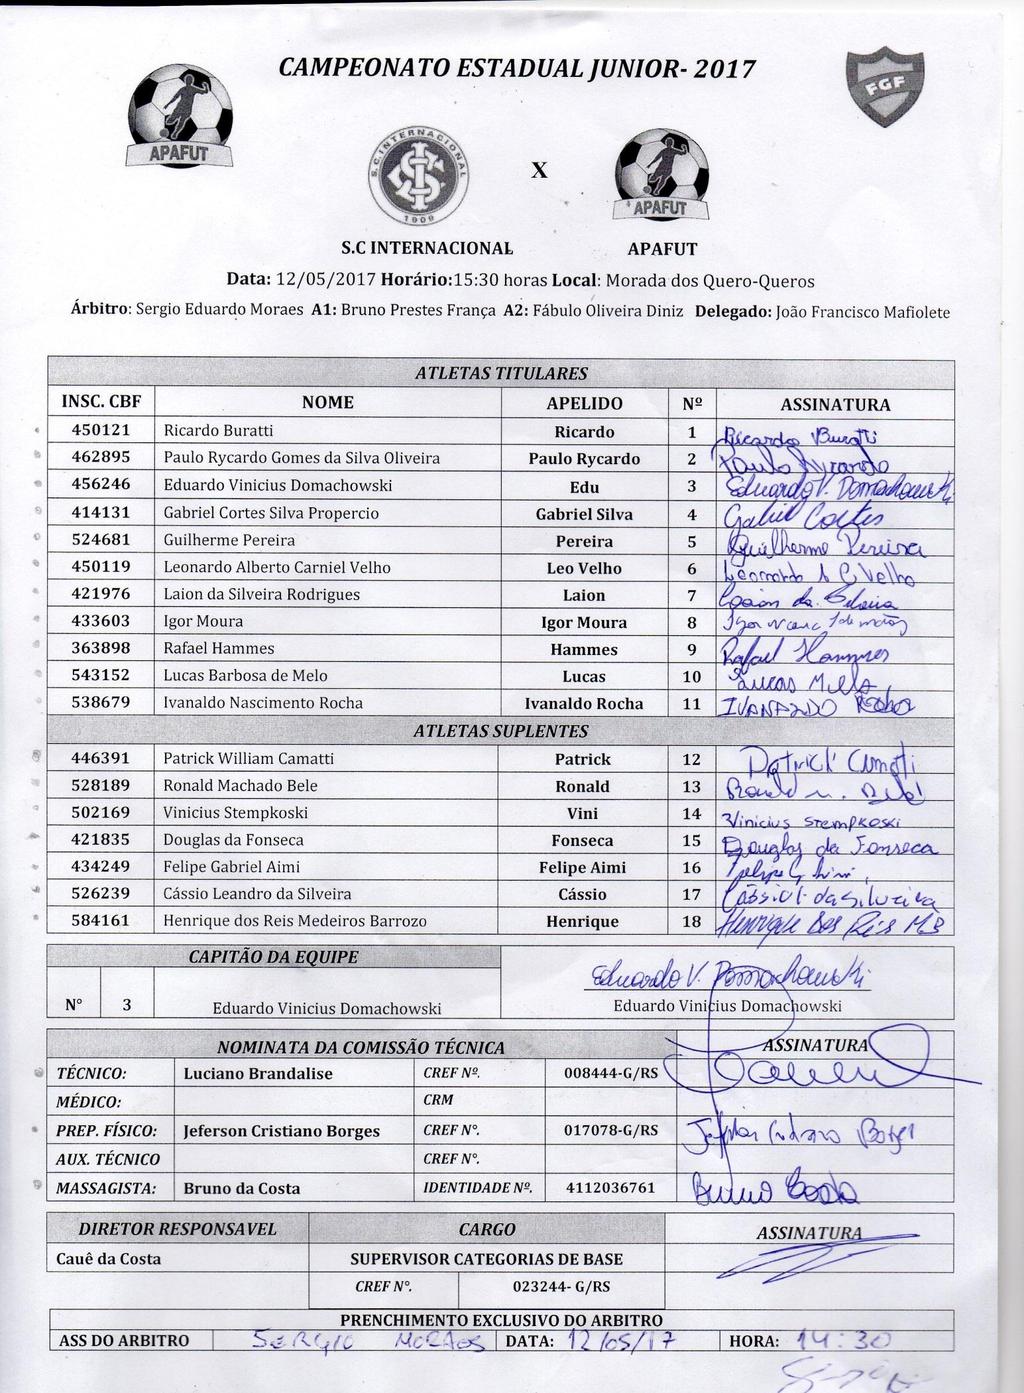 CAMPEONATO ESTADUAL JUNIOR- 2017
FGF
APAFUT
S.C. INTERNACIONAL
1909
X
APAFUT
S.C INTERNACIONAL APAFUT
Data: 12/05/2017 Horário:15:30 horas Local: Morada dos Quero-Queros
Árbitro: Sergio Eduardo Moraes A1: Bruno Prestes França A2: Fábulo Oliveira Diniz Delegado: João Francisco Mafiolete
ATLETAS TITULARES
INSC. CBF NOME APELIDO Nº ASSINATURA
450121 Ricardo Buratti Ricardo 1 Ricardo Buratti
462895 Paulo Rycardo Gomes da Silva Oliveira Paulo Rycardo 2 Paulo Rycardo
456246 Eduardo Vinicius Domachowski Edu 3 Eduardo V. Domachowski
414131 Gabriel Cortes Silva Propercio Gabriel Silva 4 Gabriel Cortes
524681 Guilherme Pereira Pereira 5 Guilherme Pereira
450119 Leonardo Alberto Carniel Velho Leo Velho 6 Leonardo A C Velho
421976 Laion da Silveira Rodrigues Laion 7 Laion da Silveira
433603 Igor Moura Igor Moura 8 Igor
363898 Rafael Hammes Hammes 9 Rafael Hammes
543152 Lucas Barbosa de Melo Lucas 10 Lucas Mello
538679 Ivanaldo Nascimento Rocha Ivanaldo Rocha 11 IVANALDO Rocha
ATLETAS SUPLENTES
446391 Patrick William Camatti Patrick 12 Patrick Camatti
528189 Ronald Machado Bele Ronald 13 Ronald M. Bele
502169 Vinicius Stempkoski Vini 14 Vinicius Stempkoski
421835 Douglas da Fonseca Fonseca 15 Douglas da Fonseca
434249 Felipe Gabriel Aimi Felipe Aimi 16 Felipe G Aimi
526239 Cássio Leandro da Silveira Cássio 17 Cássio L. da Silveira
584161 Henrique dos Reis Medeiros Barrozo Henrique 18 Henrique dos Reis MB
CAPITÃO DA EQUIPE Eduardo V. Domachowski
Nº 3 Eduardo Vinicius Domachowski Eduardo Vinicius Domachowski
NOMINATA DA COMISSÃO TÉCNICA ASSINATURA
TÉCNICO: Luciano Brandalise CREF Nº. 008444-G/RS
MÉDICO: CRM
PREP. FÍSICO: Jeferson Cristiano Borges CREF N°. 017078-G/RS Jeferson Cristiano Borges
AUX. TÉCNICO CREF N°.
MASSAGISTA: Bruno da Costa IDENTIDADE Nº. 4112036761 Bruno Costa
DIRETOR RESPONSAVEL CARGO ASSINATURA
Cauê da Costa SUPERVISOR CATEGORIAS DE BASE
CREF N°. 023244- G/RS
PRENCHIMENTO EXCLUSIVO DO ARBITRO
ASS DO ARBITRO SERGIO MORAES DATA: 12/05/17 HORA: 14:30